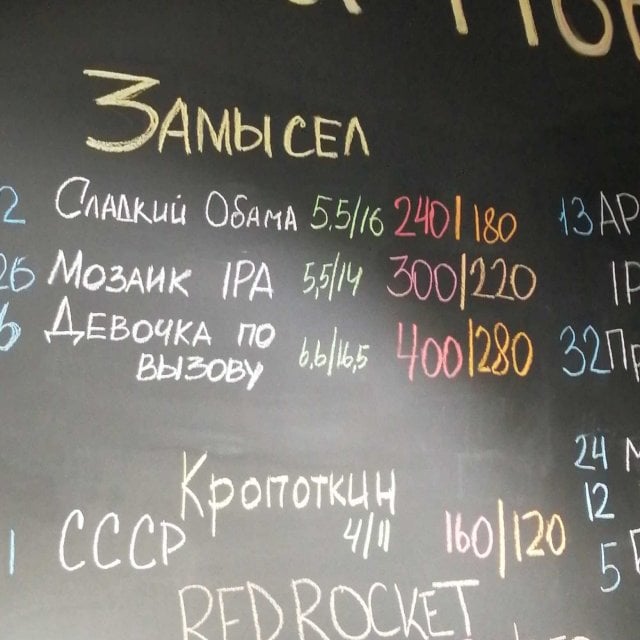 ЗАМЫСЕЛ
2 СЛАДКИЙ ОБАМА 5.5/16 240|180 13
26 МОЗАИК IPA 5,5/14 300|220
6 ДЕВОЧКА ПО ВЫЗОВУ 6,6/16,5 400|280 32
24
КРОПОТКИН 12
1 СССР 4/11 160|120 5
RED ROCKET